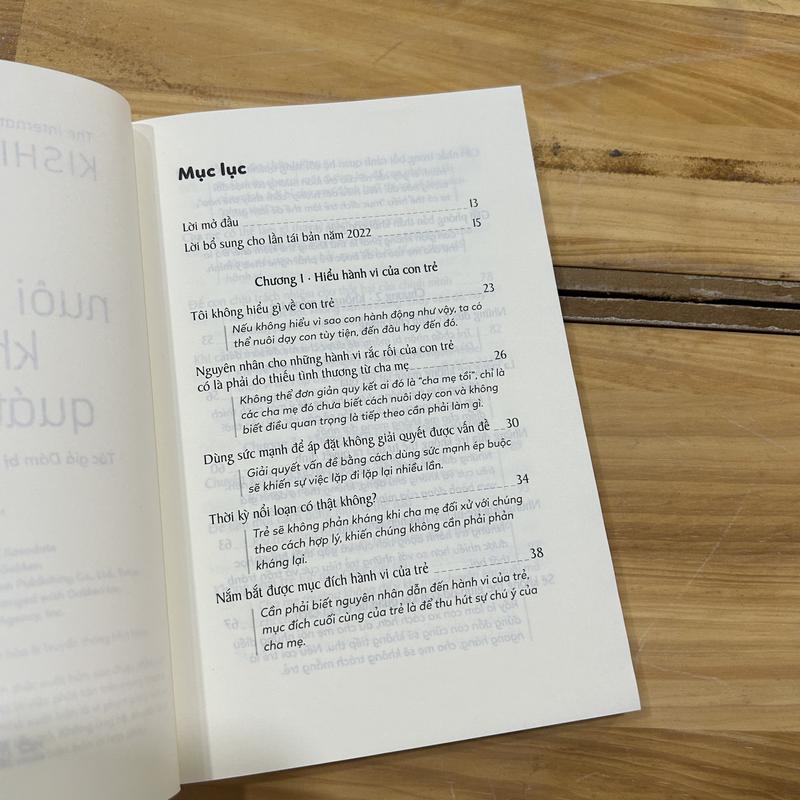 Mục lục
Lời mở đầu 13
Lời bổ sung cho lần tái bản năm 2022 15
Chương I · Hiểu hành vi của con trẻ
Tôi không hiểu gì về con trẻ 23
Nếu không hiểu vì sao con hành động như vậy, ta có
thể nuôi dạy con tùy tiện, đến đâu hay đến đó.
Nguyên nhân cho những hành vi rắc rối của con trẻ
có là phải do thiếu tình thương từ cha mẹ 26
Không thể đơn giản quy kết ai đó là "cha mẹ tồi", chỉ là
các cha mẹ đó chưa biết cách nuôi dạy con và không
biết điều quan trọng là tiếp theo cần phải làm gì.
Dùng sức mạnh để áp đặt không giải quyết được vấn đề 30
Giải quyết vấn đề bằng cách dùng sức mạnh ép buộc
sẽ khiến sự việc lặp đi lặp lại nhiều lần.
Thời kỳ nổi loạn có thật không? 34
Trẻ sẽ không phản kháng khi cha mẹ đối xử với chúng
theo cách hợp lý, khiến chúng không cần phải phản
kháng lại.
Nắm bắt được mục đích hành vi của trẻ 38
Cần phải biết nguyên nhân dẫn đến hành vi của trẻ,
mục đích cuối cùng của trẻ là để thu hút sự chú ý của
cha mẹ.